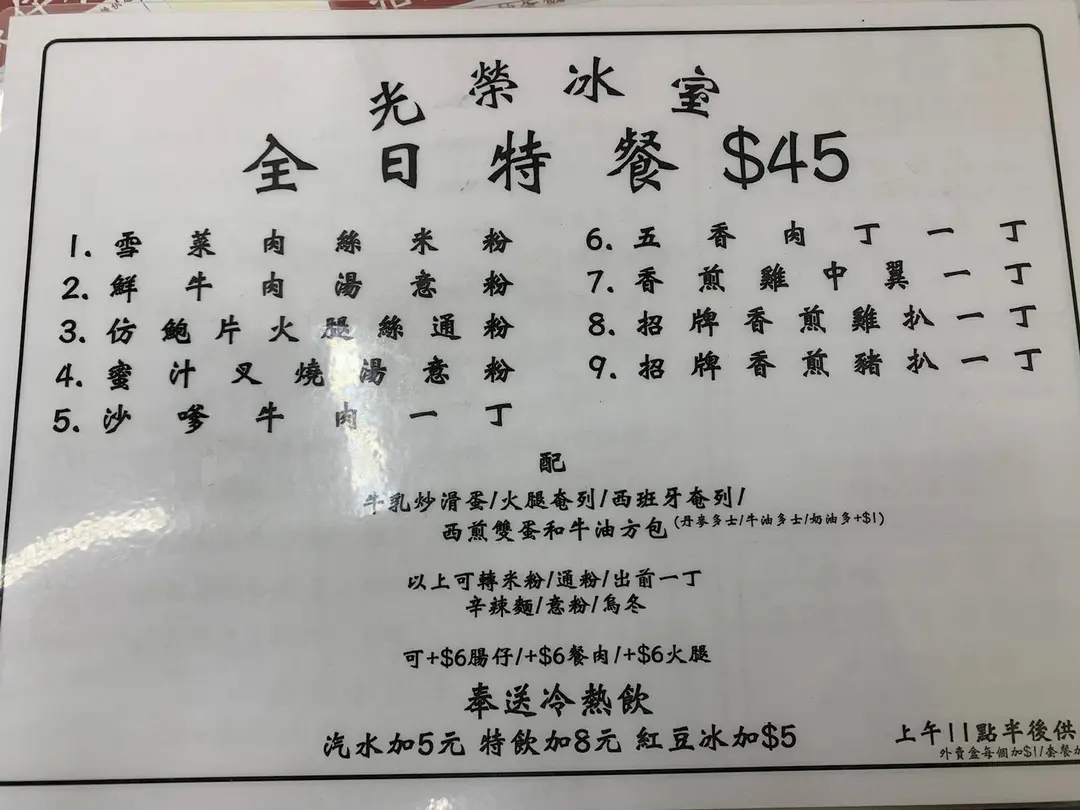 光榮冰室
全日特餐 $45
1. 雪菜肉絲米粉
2. 鮮牛肉湯意粉
3. 仿鮑片火腿絲通粉
4. 蜜汁叉燒湯意粉
5. 沙嗲牛肉一丁
6. 五香肉丁一丁
7. 香煎雞中翼一丁
8. 招牌香煎雞扒一丁
9. 招牌香煎豬扒一丁
配
牛乳炒滑蛋/火腿奄列/西班牙奄列/
西煎雙蛋和牛油方包 (丹麥多士/牛油多士/奶油多+$1)
以上可轉米粉/通粉/出前一丁
辛辣麵/意粉/烏冬
可+$6腸仔/+$6餐肉/+$6火腿
奉送冷熱飲
汽水加5元 特飲加8元 紅豆冰加$5
上午11點半後供
外賣盒每個加$1/套餐加